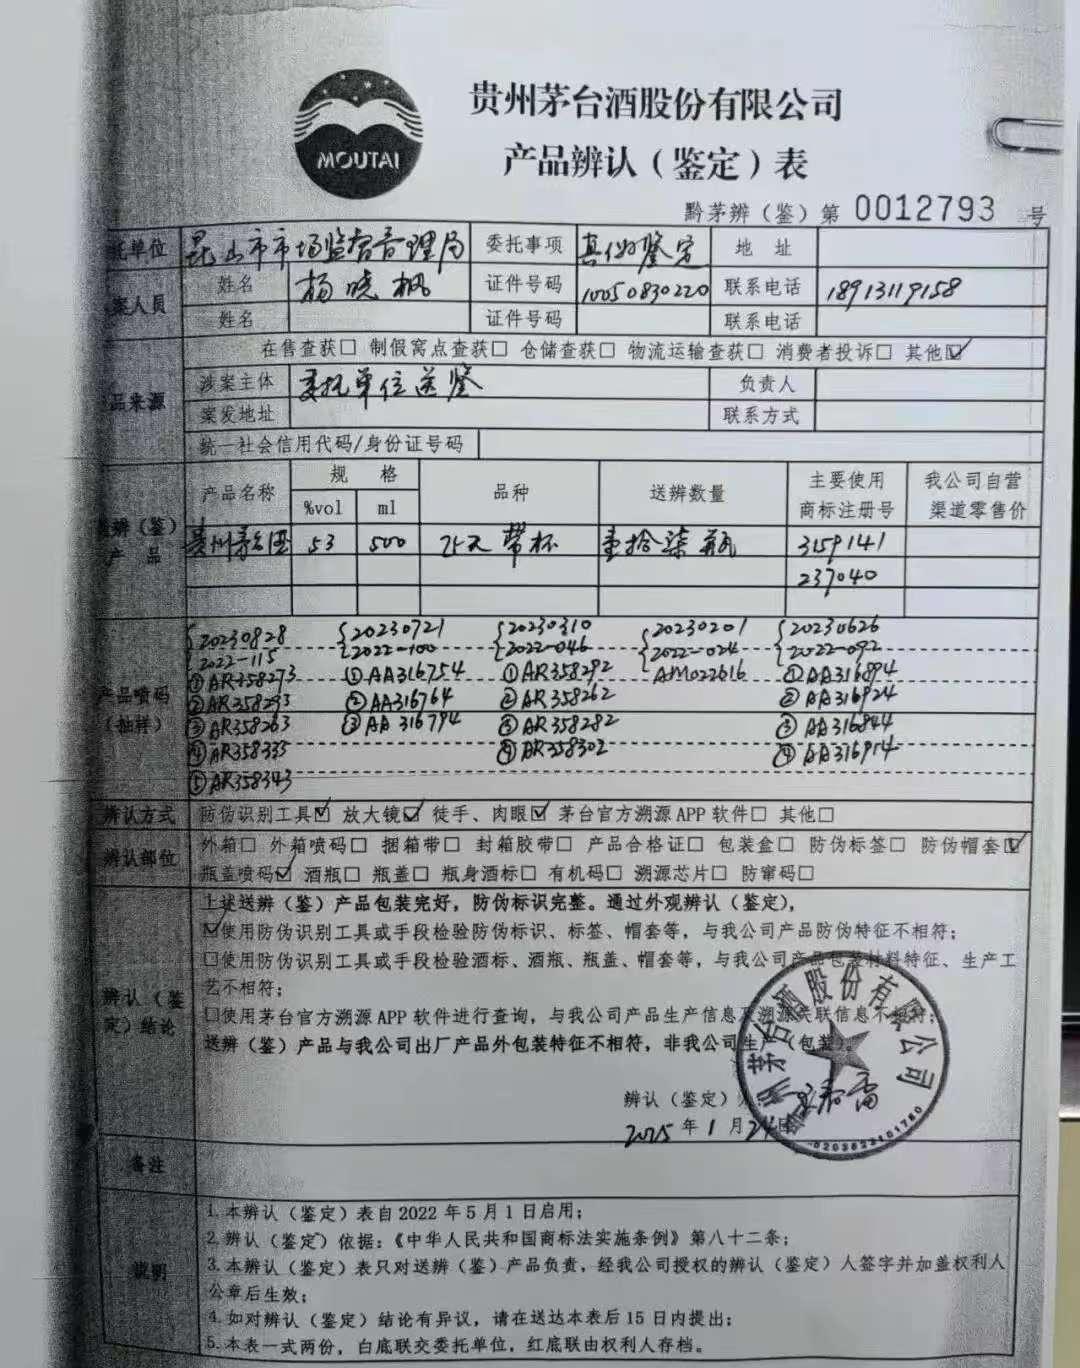 MOUTAI
贵州茅台酒股份有限公司
产品辨认（鉴定）表
黔茅辨（鉴）第 0012793 号
托单位 昆山市市场监督管理局 委托事项 真伪鉴定 地 址
案人员 姓名 杨晓枫 证件号码 10050830220 联系电话 18913119158
姓名 证件号码 联系电话
品来源 在售查获□ 制假窝点查获□ 仓储查获□ 物流运输查获□ 消费者投诉□ 其他☑
涉案主体 委托单位送鉴 负责人
案发地址 联系方式
统一社会信用代码/身份证号码
辨（鉴）产 品 产品名称 规 格 品种 送辨数量 主要使用商标注册号 我公司自营渠道零售价
%vol ml
贵州茅台酒 53 500 飞天 带杯 壹拾柒瓶 3159141
237040
产品喷码（抽样）
20230828 20230721 20230310 20230201 20230626
2022-115 2022-100 2022-046 2022-024 2022-092
①AR358273 ①AA316754 ①AR358292 AM022616 ①AA316894
②AR358293 ②AA316764 ②AR358262 ②AA316924
③AR358263 ③AA316794 ③AR358282 ③AA316844
④AR358333 ④AR358302 ④AA316914
⑤AR358343
辨认方式 防伪识别工具☑ 放大镜☑ 徒手、肉眼☑ 茅台官方溯源APP软件□ 其他□
辨认部位 外箱□ 外箱喷码□ 捆箱带□ 封箱胶带□ 产品合格证□ 包装盒□ 防伪标签□ 防伪帽套☑
瓶盖喷码☑ 酒瓶□ 瓶盖□ 瓶身酒标□ 有机码□ 溯源芯片□ 防窜码□
辨认（鉴定）结论
上述送辨（鉴）产品包装完好，防伪标识完整。通过外观辨认（鉴定），
☑使用防伪识别工具或手段检验防伪标识、标签、帽套等，与我公司产品防伪特征不相符；
□使用防伪识别工具或手段检验酒标、酒瓶、瓶盖、帽套等，与我公司产品包装材料特征、生产工
艺不相符；
□使用茅台官方溯源APP软件进行查询，与我公司产品生产信息及溯源关联信息不相符；
送辨（鉴）产品与我公司出厂产品外包装特征不相符，非我公司生产（包装）
辨认（鉴定）
2025年1月24日
州茅台酒股份有限公司
5203823101780
备注
说明
1.本辨认（鉴定）表自2022年5月1日启用；
2.辨认（鉴定）依据：《中华人民共和国商标法实施条例》第八十二条；
3.本辨认（鉴定）表只对送辨（鉴）产品负责，经我公司授权的辨认（鉴定）人签字并加盖权利人
公章后生效；
4.如对辨认（鉴定）结论有异议，请在送达本表后15日内提出；
5.本表一式两份，白底联交委托单位，红底联由权利人存档。